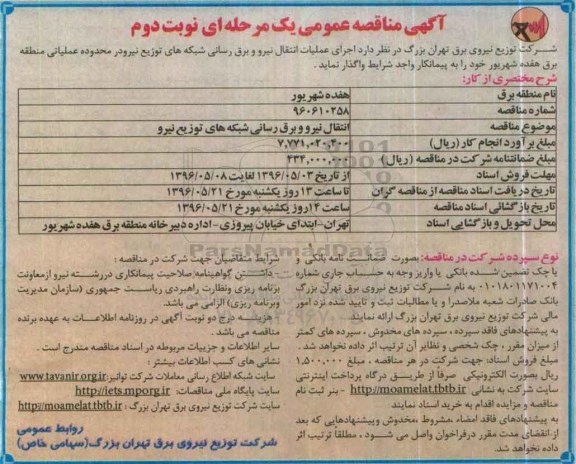 آگهی مناقصه عمومی یک مرحله ای نوبت دوم
شرکت توزیع نیروی برق تهران بزرگ در نظر دارد اجرای عملیات انتقال نیرو و برق رسانی شبکه های توزیع نیرودر محدوده عملیاتی منطقه
برق هفده شهریور خود را به پیمانکار واجد شرایط واگذار نماید .
شرح مختصری از کار:
نام منطقه برق هفده شهریور
شماره مناقصه ۹۶۰۶۱۰۲۵۸
موضوع مناقصه انتقال نیرو و برق رسانی شبکه های توزیع نیرو
مبلغ برآورد انجام کار (ریال) ۷,۷۷۱,۰۲۰,۳۰۰
مبلغ ضمانتنامه شرکت در مناقصه (ریال) ۴۳۴,۰۰۰,۰۰۰
مهلت فروش اسناد از تاریخ ۱۳۹۶/۰۵/۰۳ لغایت ۱۳۹۶/۰۵/۰۸
تاریخ دریافت اسناد مناقصه از مناقصه گران تا ساعت ۱۳ روز یکشنبه مورخ ۱۳۹۶/۰۵/۲۱
تاریخ بازگشائی اسناد مناقصه ساعت ۱۴ روز یکشنبه مورخ ۱۳۹۶/۰۵/۲۱
محل تحویل و بازگشایی اسناد تهران-ابتدای خیابان پیروزی-اداره دبیرخانه منطقه برق هفده شهریور
ParsNamadData
نوع سپرده شرکت در مناقصه: بصورت ضمانت نامه بانکی و
یا چک تضمین شده بانکی یا واریز وجه به حساب جاری شماره
۰۱۰۱۸۰۱۱۷۱۰۰۴ به نام شرکت توزیع نیروی برق تهران بزرگ
بانک صادرات شعبه ملاصدرا و یا مطالبات ثبت و تایید شده نزد امور
مالی شرکت توزیع نیروی برق تهران بزرگ ارائه نمایند
به پیشنهادهای فاقد سپرده ، سپرده های مخدوش ، سپرده های کمتر
از میزان مقرر ، چک شخصی و نظایر آن ترتیب اثر داده نخواهد شد .
مبلغ فروش اسناد: جهت شرکت در هر مناقصه ، مبلغ ۱,۵۰۰,۰۰۰
ریال بصورت الکترونیکی صرفا از طریق درگاه پرداخت اینترنتی
سایت شرکت به نشانی http://moamelat.tbtb.ir - بنر ثبت نام
مناقصه و مزایده اقدام به خرید اسناد نمایند
به پیشنهادهای فاقد امضاء ،مشروط ،مخدوش و پیشنهادهایی که بعد
از انقضای مدت مقرر در فراخوان واصل می شود ، مطلقا ترتیب اثر
داده نخواهد شد.
شرایط متقاضیان جهت شرکت در مناقصه :
- داشتن گواهینامه صلاحیت پیمانکاری در رشته نیرو از معاونت
برنامه ریزی و نظارت راهبردی ریاست جمهوری (سازمان مدیریت
و برنامه ریزی) الزامی می باشد.
هزینه درج دو نوبت آگهی در روزنامه اطلاعات به عهده برنده
مناقصه می باشد .
سایر اطلاعات و جزییات مربوطه در اسناد مناقصه مندرج است .
نشانی های کسب اطلاعات بیشتر :
سایت شبکه اطلاع رسانی معاملات شرکت توانیر: www.tavanir.org.ir
سایت پایگاه ملی مناقصات: http://iets.mporg.ir
شرکت توزیع نیروی برق تهران بزرگ : http://moamelat.tbtb.ir
روابط عمومی
شرکت توزیع نیروی برق تهران بزرگ(سهامی خاص)